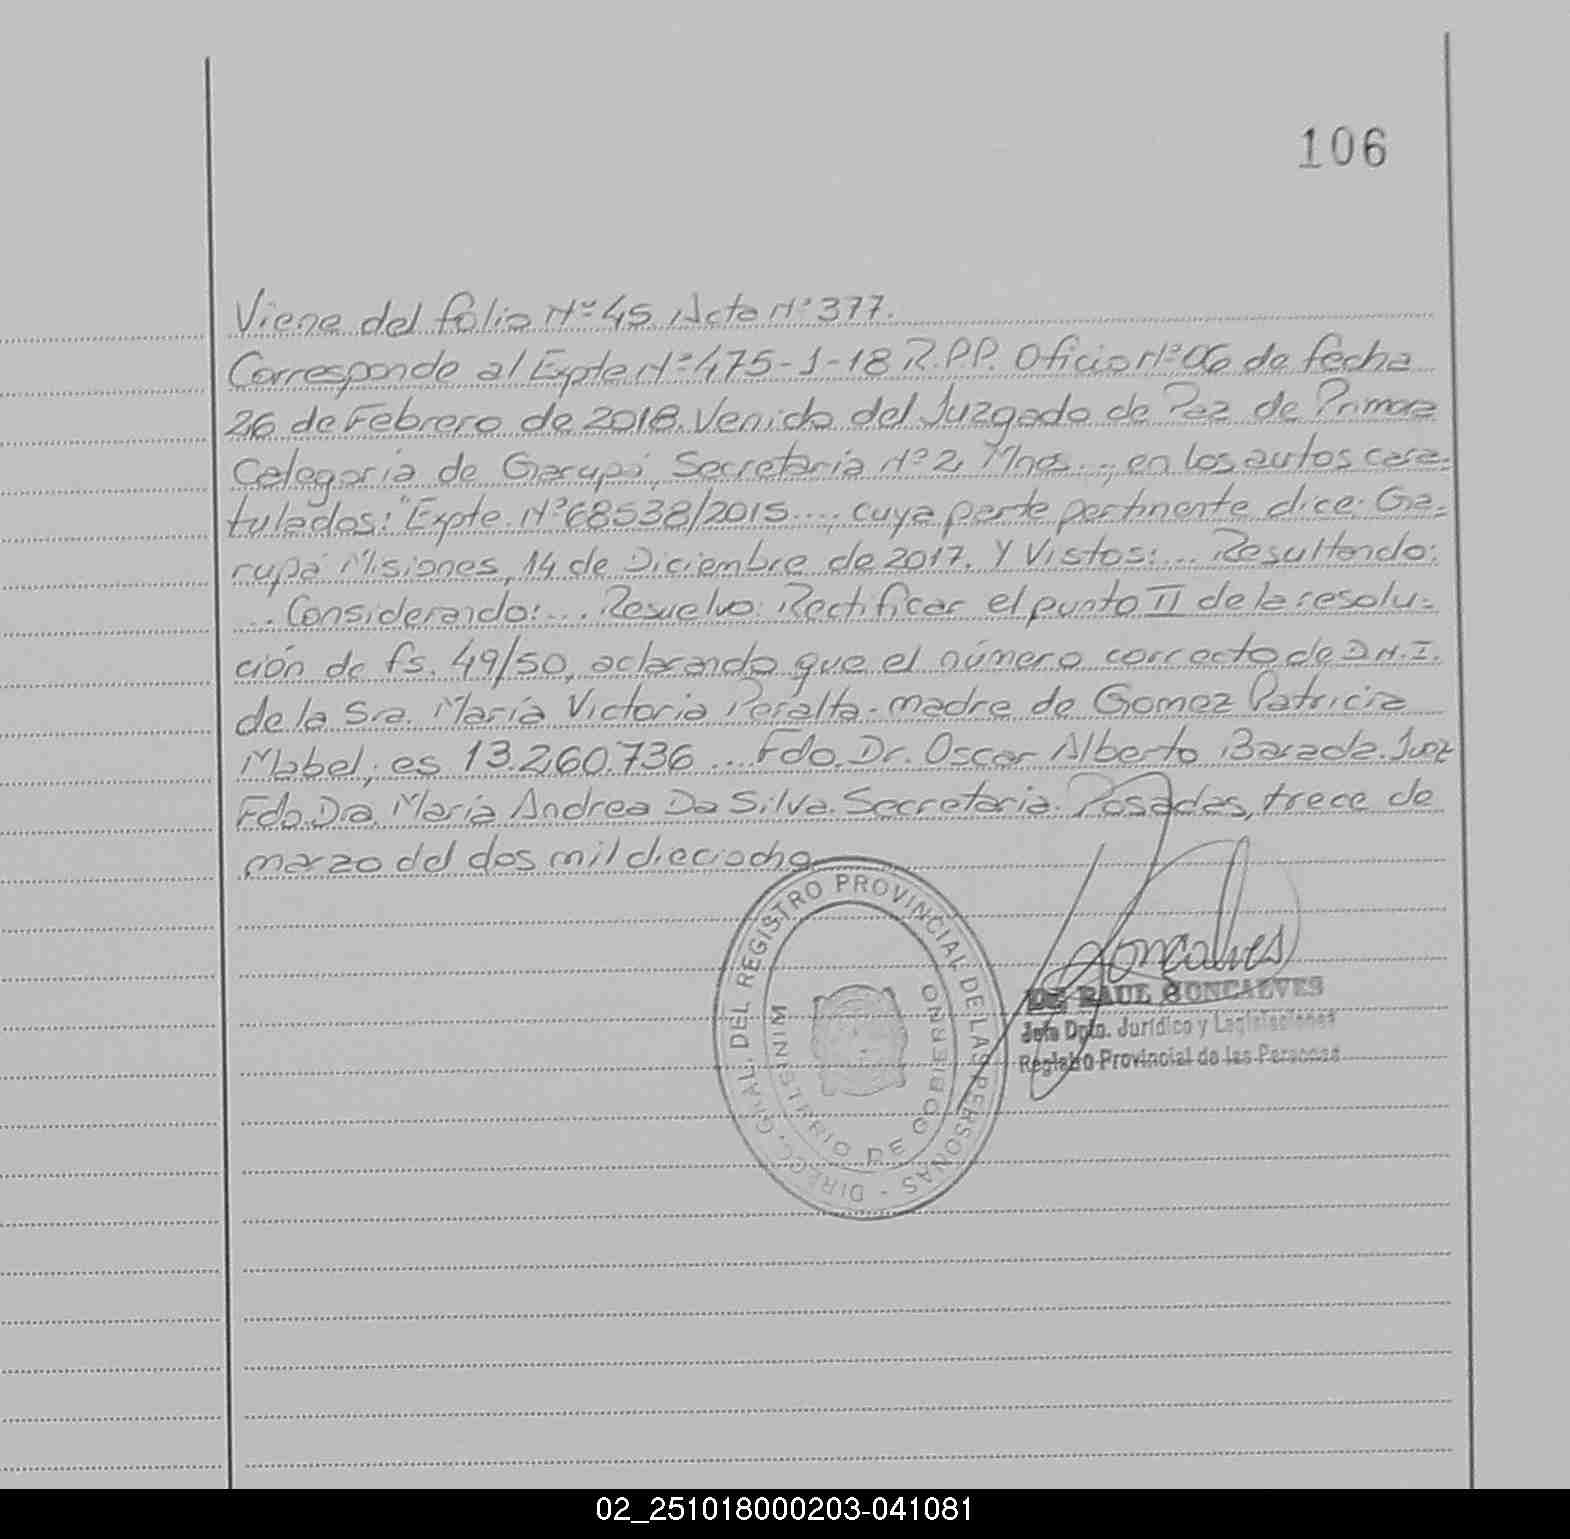 106
Viene del folio Nº 45 Acta Nº 377.
Corresponde al Expte Nº 475-1-18 R.P.P. Oficio Nº 06 de fecha
26 de Febrero de 2018. Venido del Juzgado de Paz de Primera
Categoría de Garupá, Secretaria Nº 2, Mnes..., en los autos cara-
tulados: "Expte. Nº 68538/2015...., cuya parte pertinente dice: Ga-
rupá Misiones, 14 de Diciembre de 2017. Y Vistos:... Resultando:
...Considerando:... Resuelvo: Rectificar el punto II de la resolu-
ción de fs. 49/50, aclarando que el número correcto de D.N.I.
de la Sra. María Victoria Peralta - madre de Gomez Patricia
Mabel, es 13.260.736 ... Fdo. Dr. Oscar Alberto Barada. Juez
Fdo. Dra. María Andrea Da Silva. Secretaria. Posadas, trece de
marzo del dos mil dieciocho
DIRECC. GRAL. DEL REGISTRO PROVINCIAL DE LAS PERSONAS -
MINISTERIO DE GOBIERNO
Goncalves
RAUL GONCALVES
Jefe Dpto. Jurídico y Legislaciones
Registro Provincial de las Personas
02_251018000203-041081